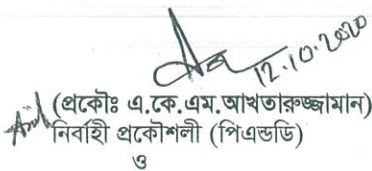 12.10.2020
(প্রকৌঃ এ.কে.এম.আখতারুজ্জামান)
নির্বাহী প্রকৌশলী (পিএন্ডডি)
ও